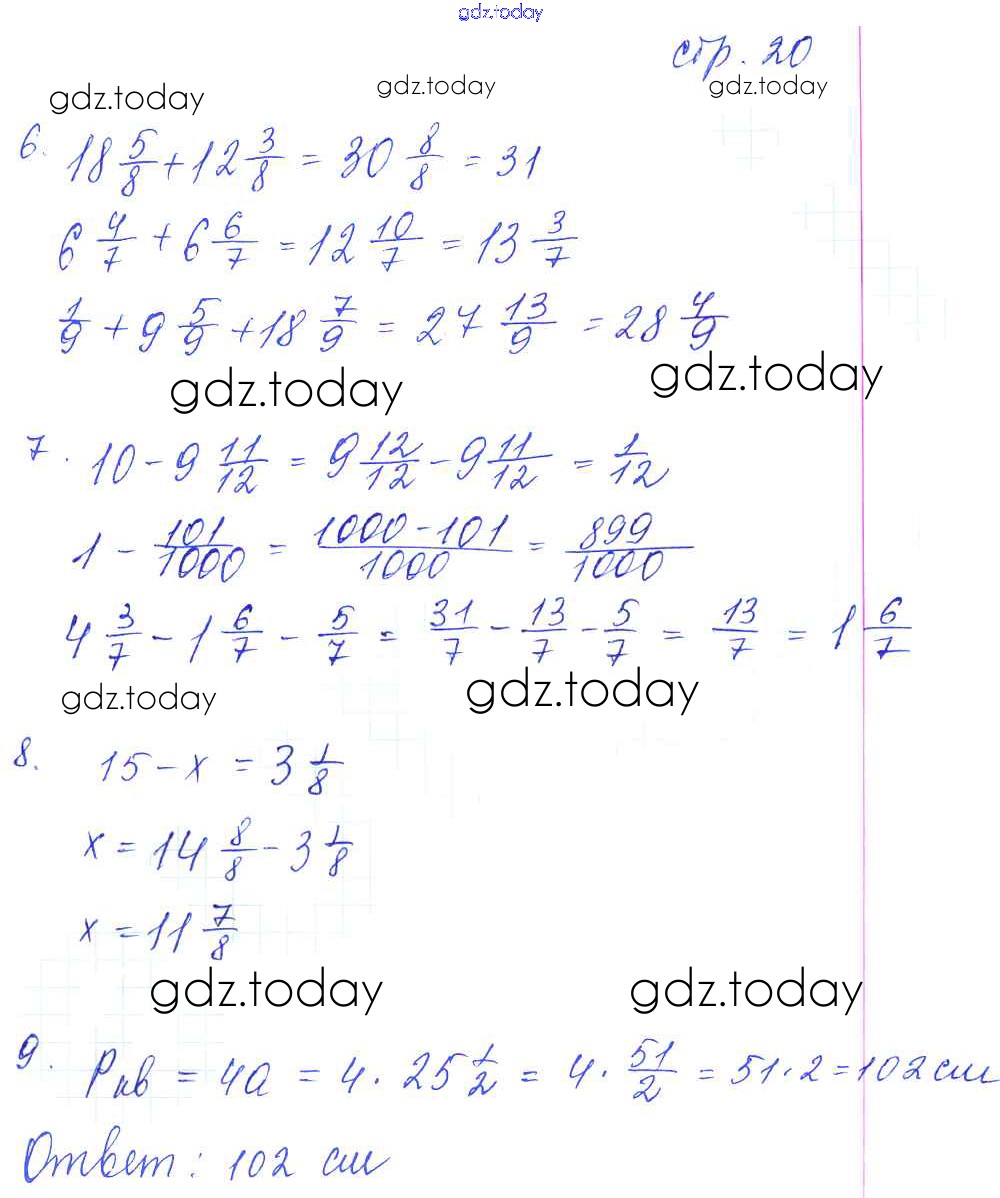 gdz.today
стр. 20
gdz.today gdz.today gdz.today
6. 18 5/8 + 12 3/8 = 30 8/8 = 31
6 4/7 + 6 6/7 = 12 10/7 = 13 3/7
1/9 + 9 5/9 + 18 7/9 = 27 13/9 = 28 4/9
gdz.today gdz.today
7. 10 - 9 11/12 = 9 12/12 - 9 11/12 = 1/12
1 - 101/1000 = 1000-101/1000 = 899/1000
4 3/7 - 1 6/7 - 5/7 = 31/7 - 13/7 - 5/7 = 13/7 = 1 6/7
gdz.today gdz.today
8. 15 - x = 3 1/8
x = 14 8/8 - 3 1/8
x = 11 7/8
gdz.today gdz.today
9. Pкв = 4a = 4 · 25 1/2 = 4 · 51/2 = 51 · 2 = 102 см
Ответ: 102 см